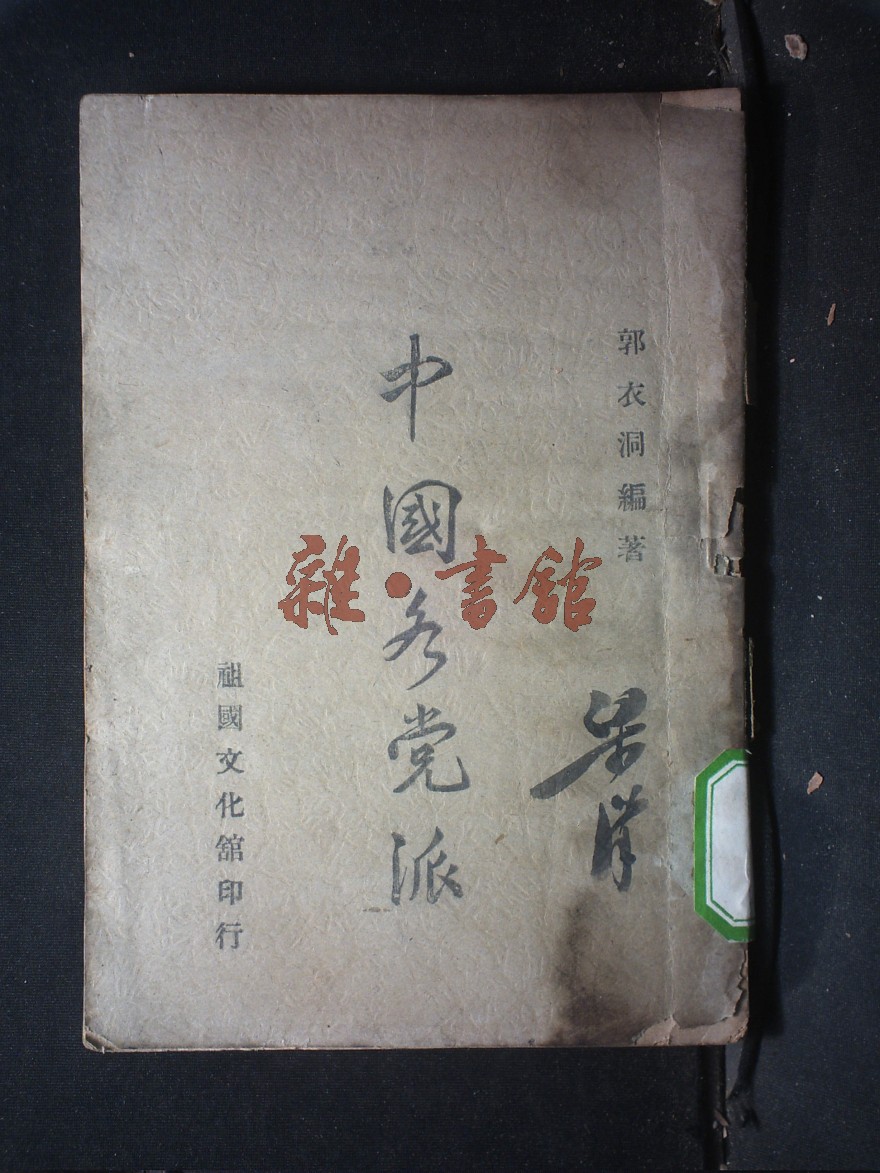 郭衣洞編著
中國各党派
祖國文化館印行
雜·書舘